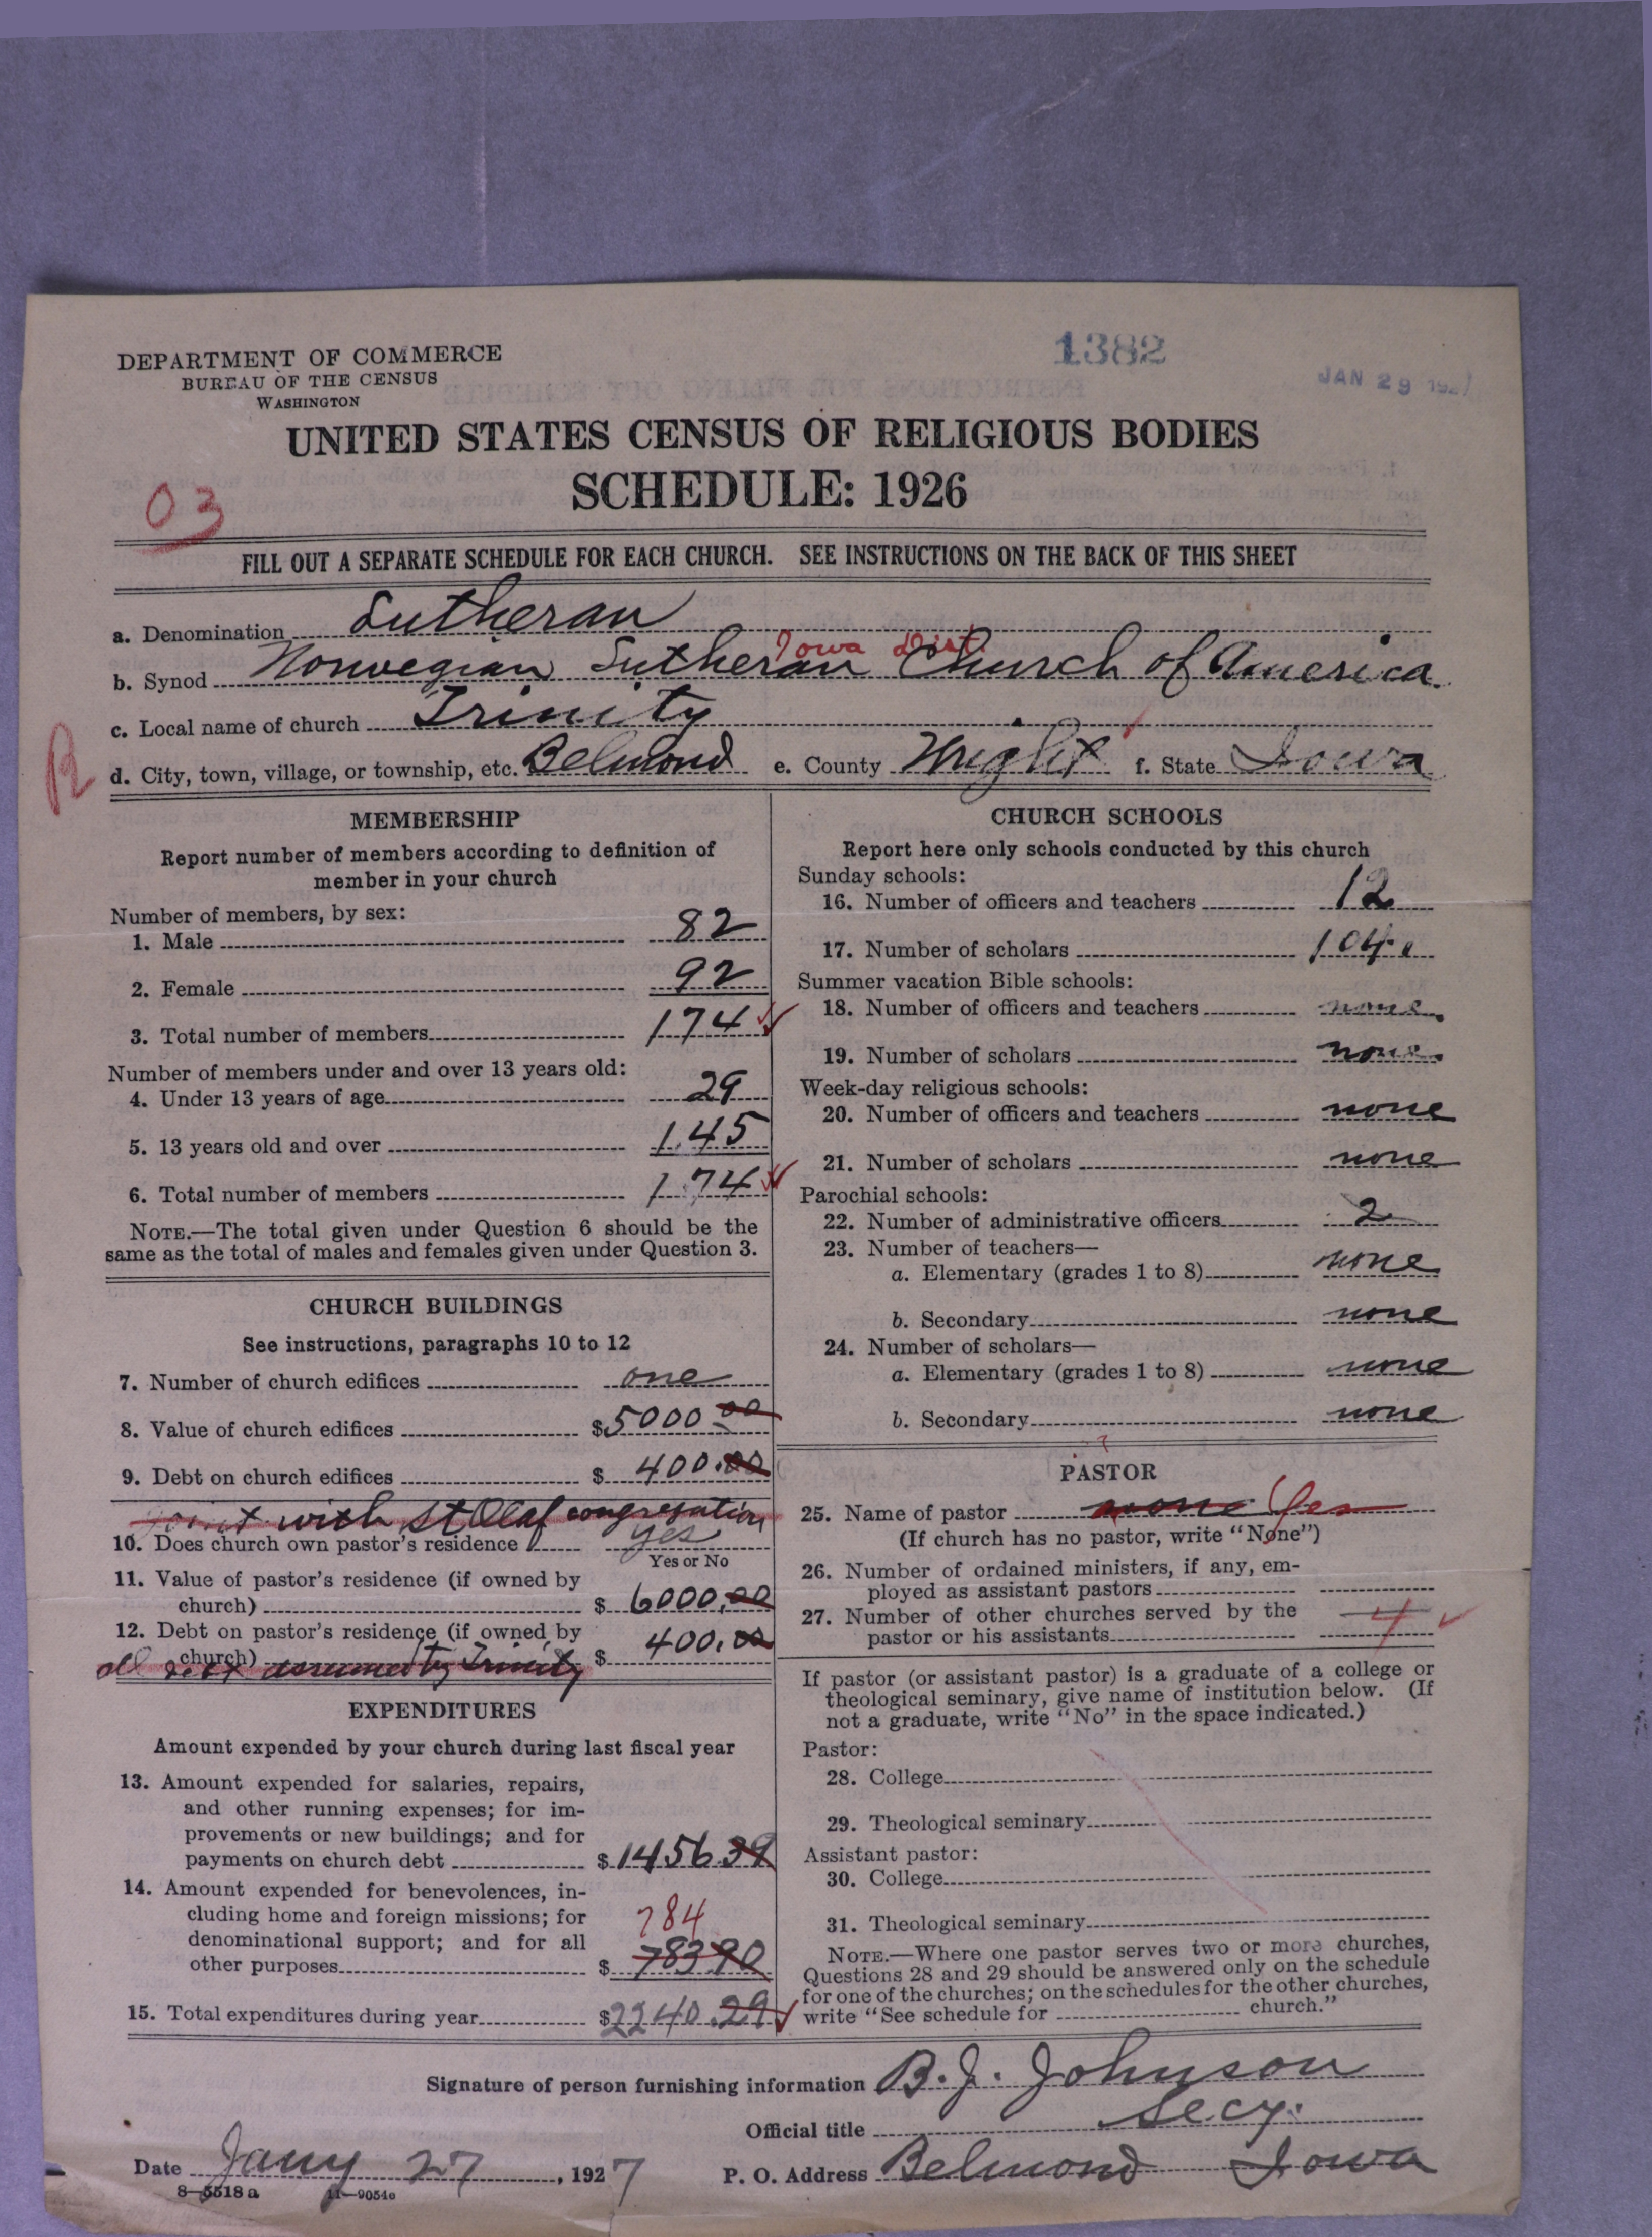 DEPARTMENT OF COMMERCE
BUREAU OF THE CENSUS
WASHINGTON
1382
JAN 29 192
UNITED STATES CENSUS OF RELIGIOUS BODIES
SCHEDULE: 1926
03
FILL OUT A SEPARATE SCHEDULE FOR EACH CHURCH. SEE INSTRUCTIONS ON THE BACK OF THIS SHEET
a. Denomination Lutheran
Iowa Dist
b. Synod Norwegian Lutheran Church of America.
c. Local name of church Trinity
d. City, town, village, or township, etc. Belmond e. County Wright f. State Iowa
MEMBERSHIP
Report number of members according to definition of
member in your church
Number of members, by sex:
1. Male 82
2. Female 92
3. Total number of members 174
Number of members under and over 13 years old:
4. Under 13 years of age 29
5. 13 years old and over 145
6. Total number of members 174
NOTE.—The total given under Question 6 should be the
same as the total of males and females given under Question 3.
CHURCH BUILDINGS
See instructions, paragraphs 10 to 12
7. Number of church edifices one
8. Value of church edifices $5000 00
9. Debt on church edifices $ 400.00
Joint with St Olaf congregation
10. Does church own pastor's residence yes
Yes or No
11. Value of pastor's residence (if owned by
church) $ 6000.00
12. Debt on pastor's residence (if owned by
church) $ 400.00
all debt assumed by Trinity
EXPENDITURES
Amount expended by your church during last fiscal year
13. Amount expended for salaries, repairs,
and other running expenses; for im-
provements or new buildings; and for
payments on church debt $ 1456 39
14. Amount expended for benevolences, in-
cluding home and foreign missions; for
denominational support; and for all
784
other purposes $ 783 90
15. Total expenditures during year $2240.29
CHURCH SCHOOLS
Report here only schools conducted by this church
Sunday schools:
16. Number of officers and teachers 12
17. Number of scholars 104
Summer vacation Bible schools:
18. Number of officers and teachers none
19. Number of scholars none
Week-day religious schools:
20. Number of officers and teachers none
21. Number of scholars none
Parochial schools:
22. Number of administrative officers 2
23. Number of teachers—
a. Elementary (grades 1 to 8) none
b. Secondary none
24. Number of scholars—
a. Elementary (grades 1 to 8) none
b. Secondary none
PASTOR
25. Name of pastor none Yes
(If church has no pastor, write "None")
26. Number of ordained ministers, if any, em-
ployed as assistant pastors
27. Number of other churches served by the
pastor or his assistants 4
If pastor (or assistant pastor) is a graduate of a college or
theological seminary, give name of institution below. (If
not a graduate, write "No" in the space indicated.)
Pastor:
28. College
29. Theological seminary
Assistant pastor:
30. College
31. Theological seminary
NOTE.—Where one pastor serves two or more churches,
Questions 28 and 29 should be answered only on the schedule
for one of the churches; on the schedules for the other churches,
write "See schedule for church."
Signature of person furnishing information B. J. Johnson
Official title Secy.
Date Jany 27, 1927 P. O. Address Belmond Iowa
8—5518 a 11—9054